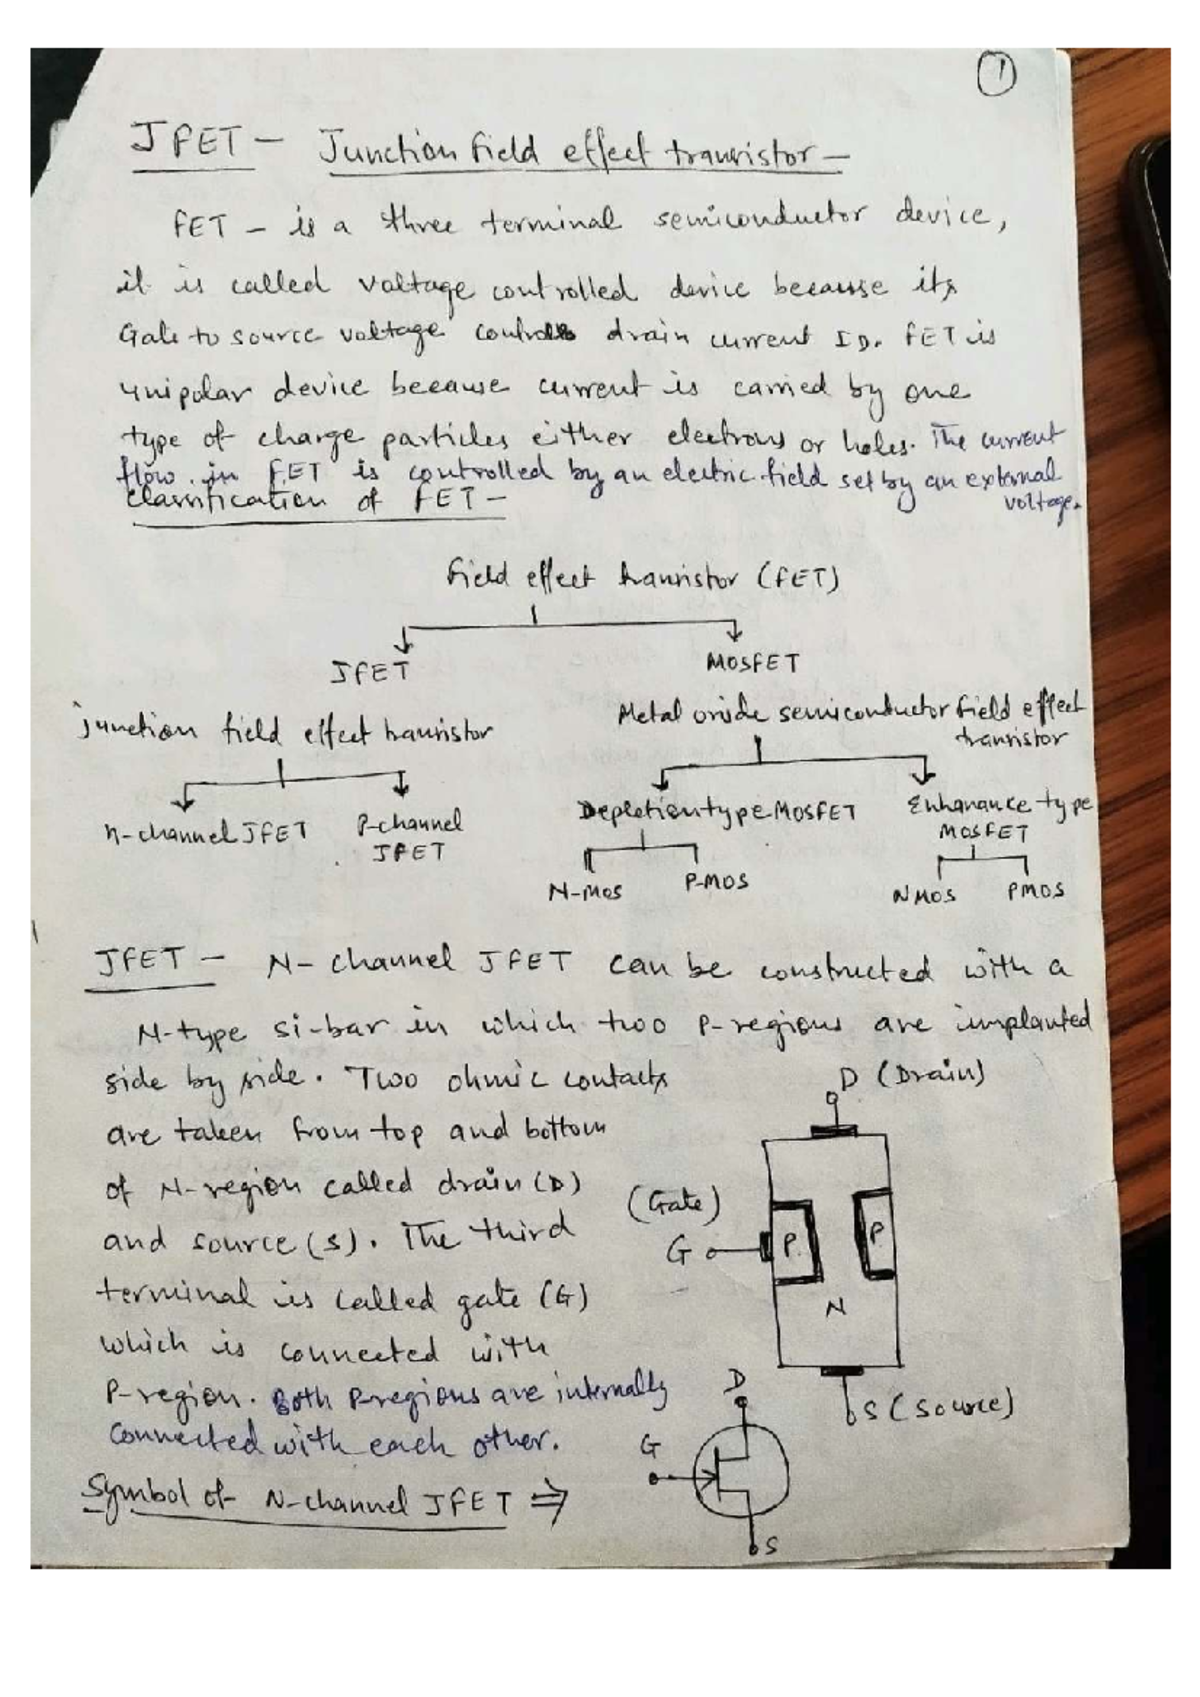 1
JFET - Junction field effect transistor -
FET - is a three terminal semiconductor device,
it is called voltage controlled device because its
Gate to source voltage controls drain current ID. FET is
unipolar device because current is carried by one
type of charge particles either electrons or holes. The current
flow in FET is controlled by an electric field set by an external
voltage.
classification of FET -
Field effect transistor (FET)
JFET
MOSFET
junction field effect transistor
Metal oxide semiconductor field effect
transistor
n-channel JFET
P-channel
JFET
Depletion type MOSFET
Enhanance type
MOSFET
N-MOS
P-MOS
NMOS
PMOS
JFET - N- channel JFET can be constructed with a
N-type si-bar in which two P-regions are implanted
side by side. Two ohmic contacts
are taken from top and bottom
of N-region called drain (D)
and source (S). The third
terminal is called gate (G)
which is connected with
P-region. Both P-regions are internally
connected with each other.
D (Drain)
(Gate)
G
P
P
N
S (Source)
Symbol of N-channel JFET ⇒
D
G
S